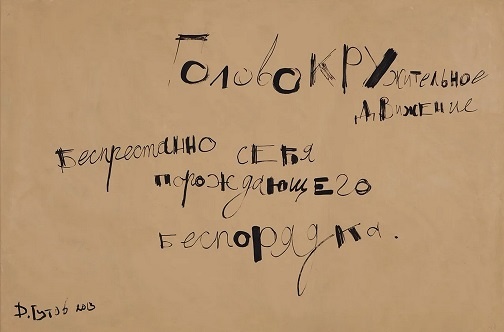 ГолОвОКРУжительное
движение
Беспрестанно СЕБЯ
порождающего
беспорядка.
Д. Гутов 2013